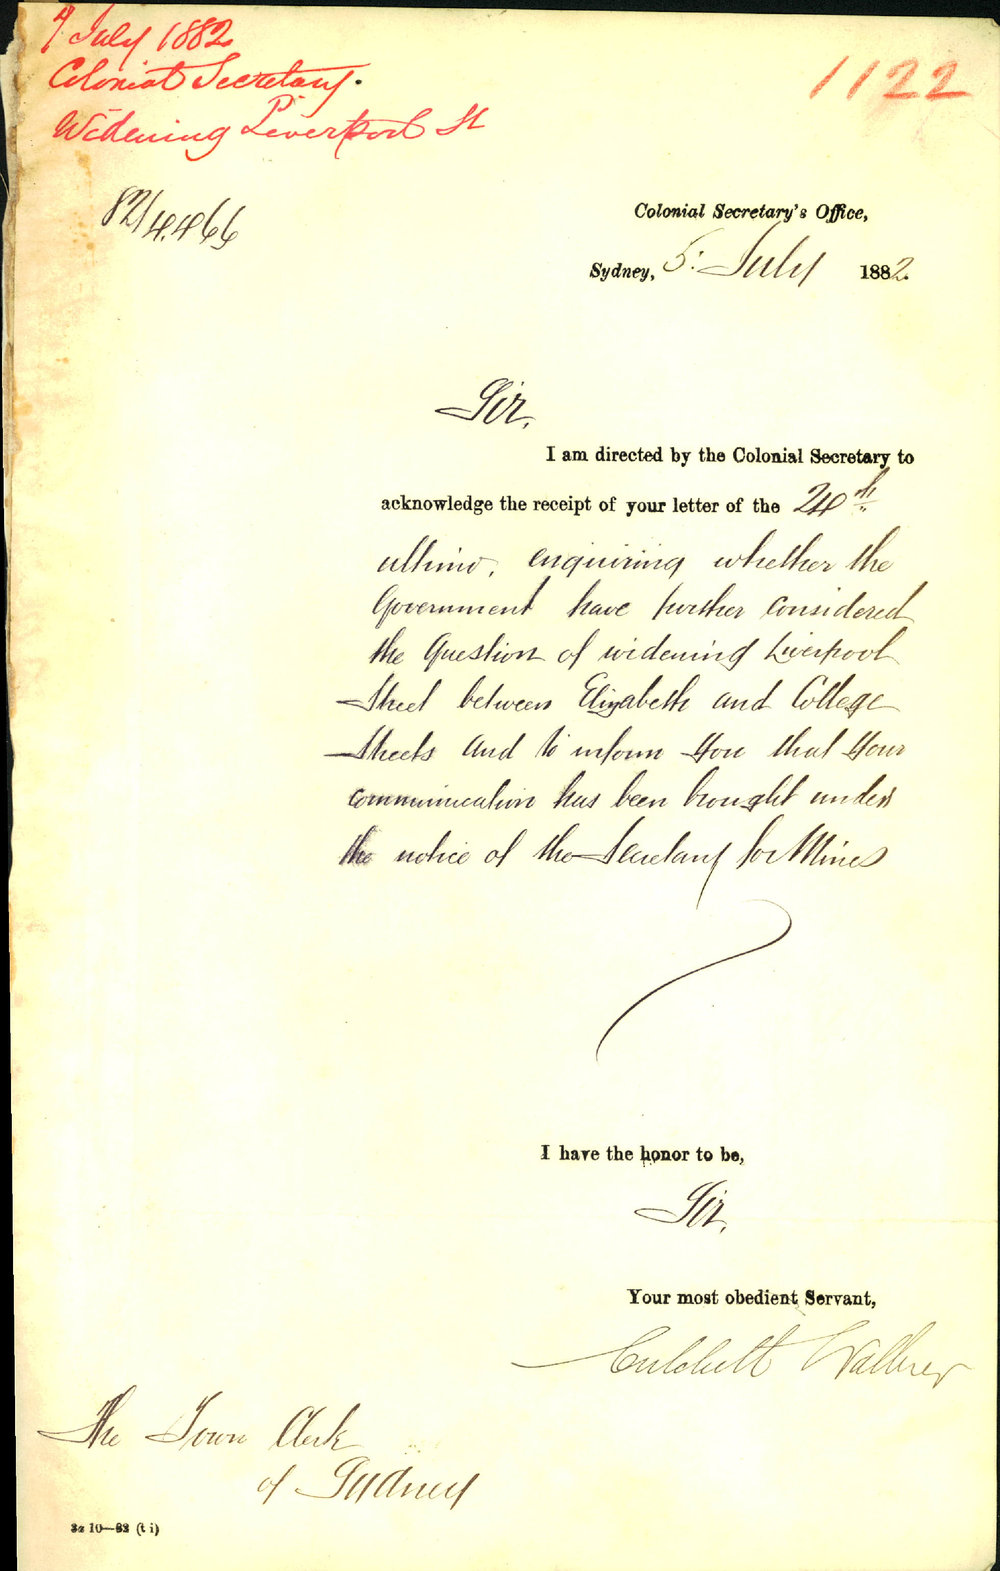 7 July 1882
Colonial Secretary.
Widening Liverpool St
1122
82/4.466
Colonial Secretary's Office,
Sydney, 5: July 1882.
Sir,
I am directed by the Colonial Secretary to
acknowledge the receipt of your letter of the 24th
ultimo, enquiring whether the
Government have further considered
the Question of widening Liverpool
Street between Elizabeth and College
Streets and to inform you that your
communication has been brought under
the notice of the Secretary for Mines
I have the honor to be,
Sir,
Your most obedient Servant,
Critchett Walker
The Town Clerk
of Sydney
3z 10—82 (t i)